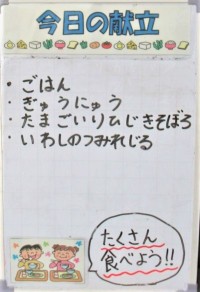 今日の献立
・ごはん
・ぎゅうにゅう
・たまごいりひじきそぼろ
・いわしのつみれじる
たくさん
食べよう!!